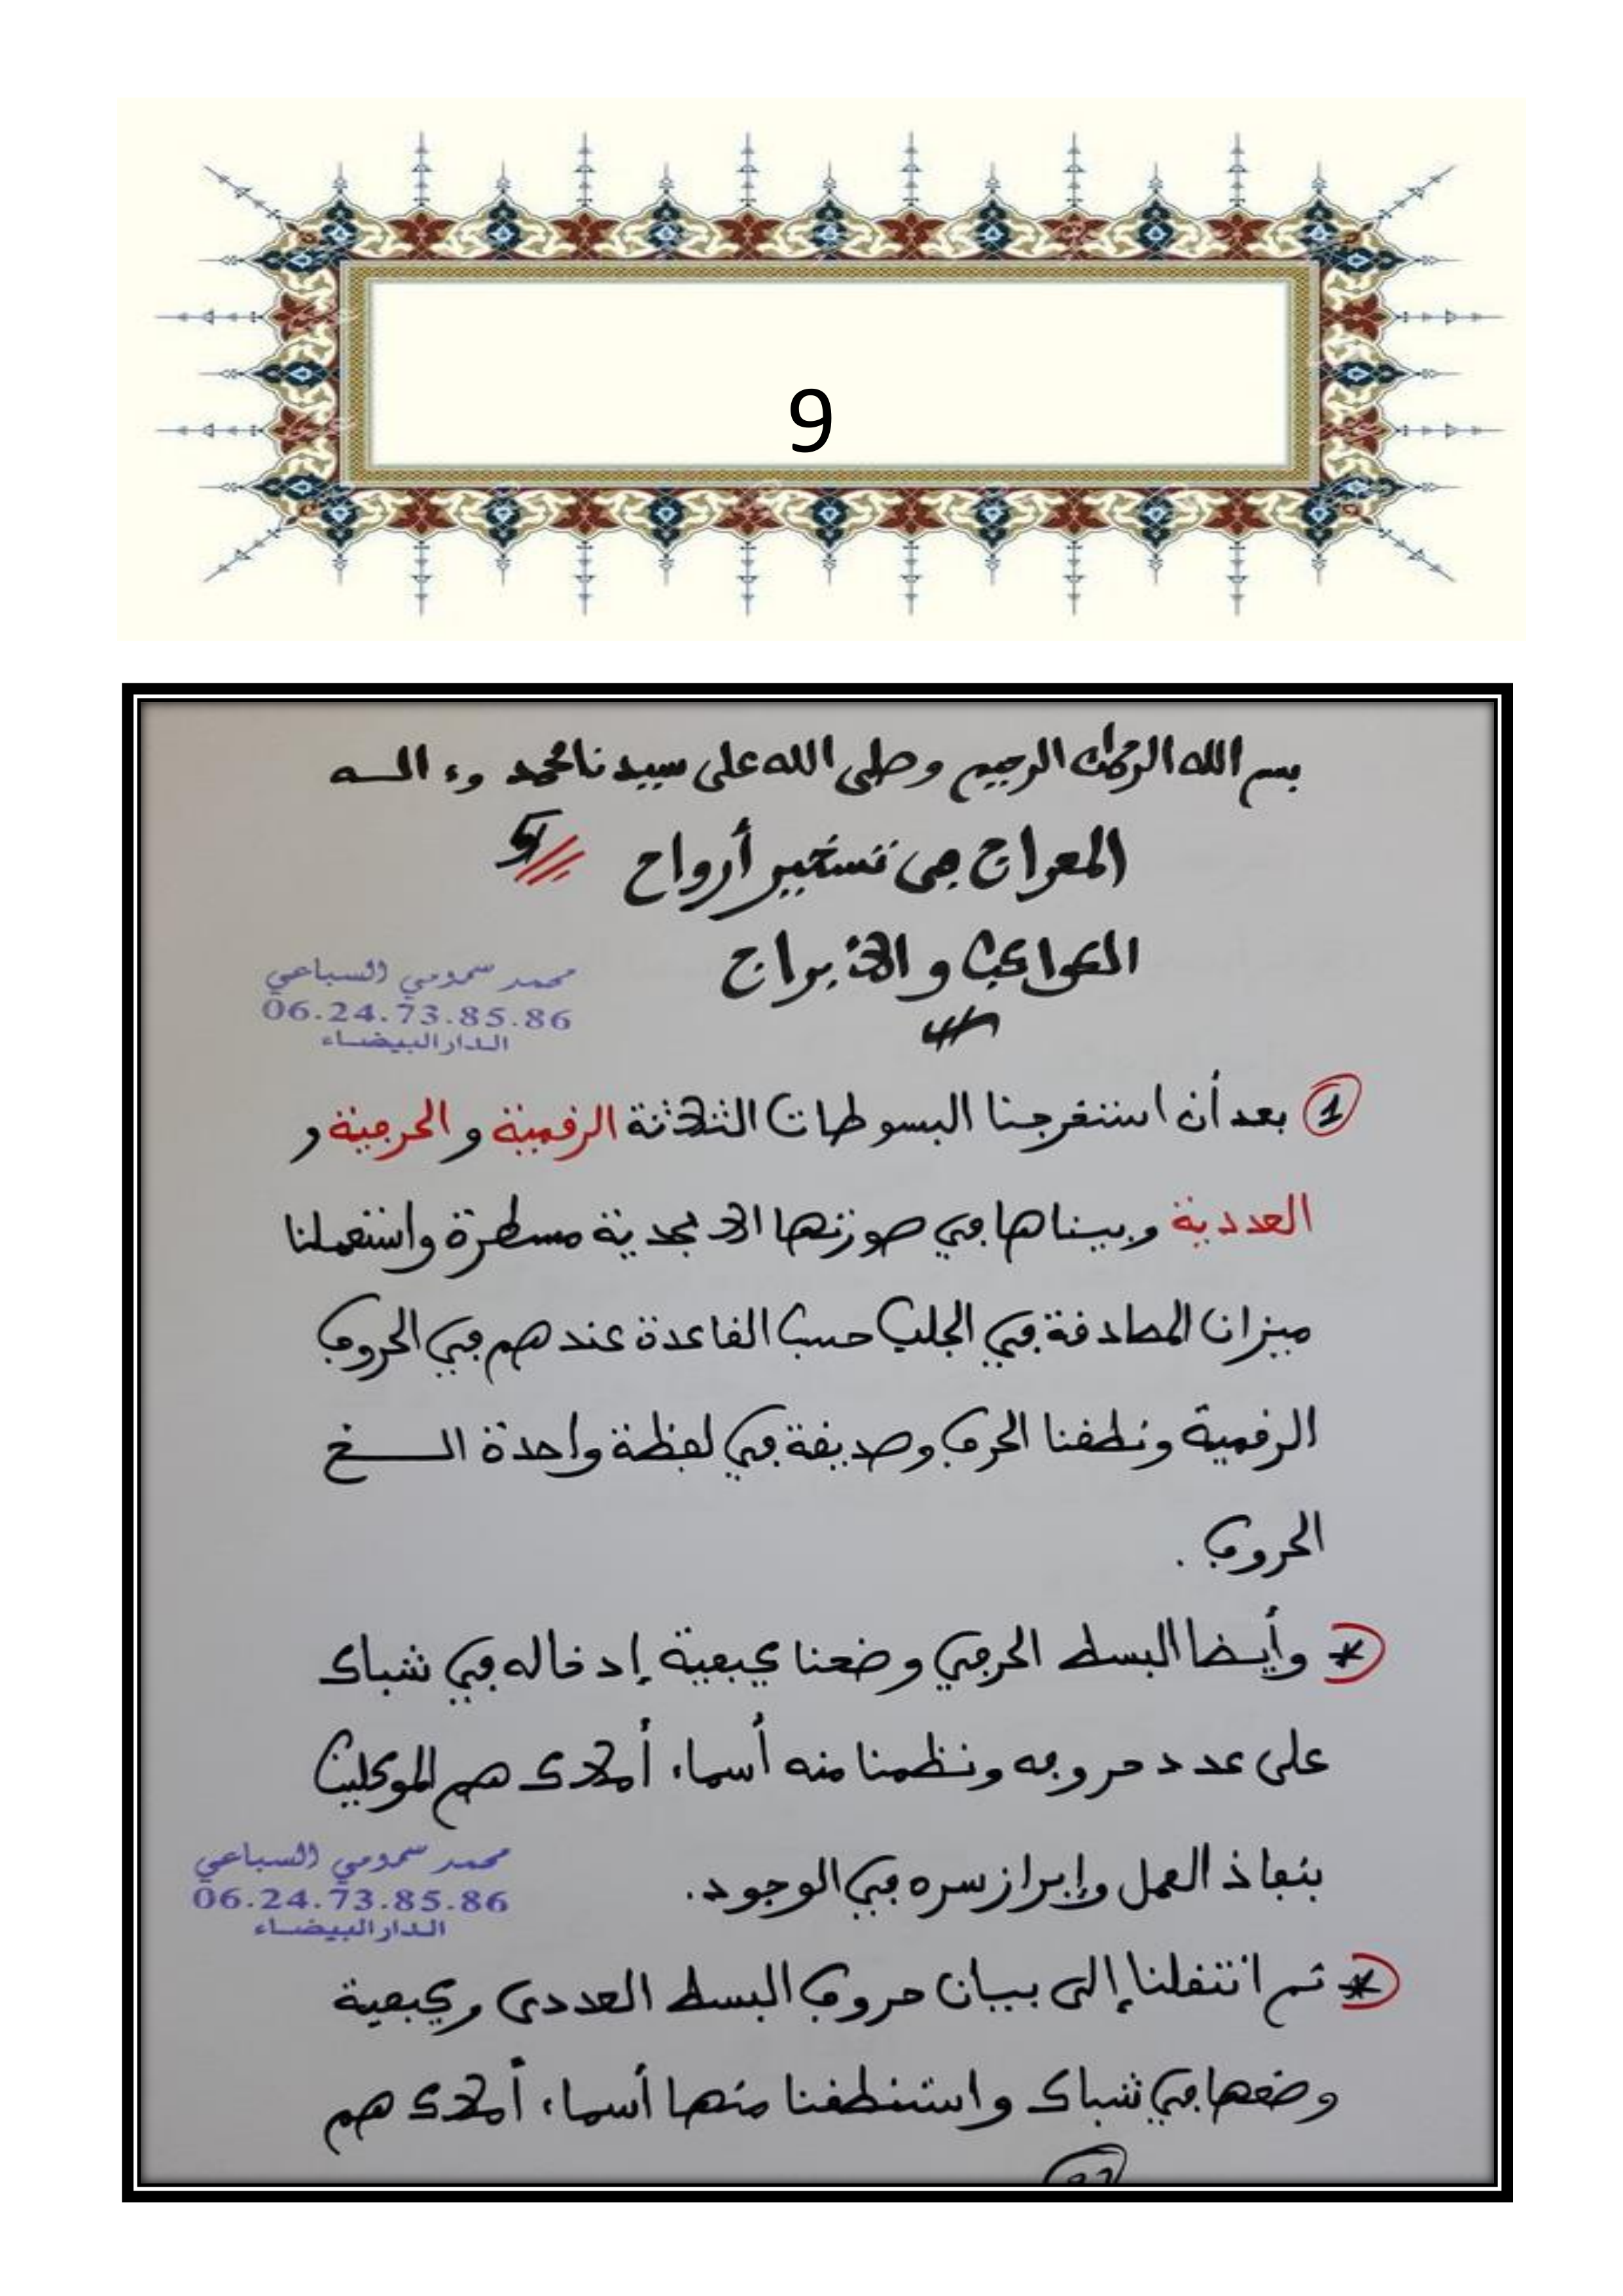 9
بسم الله الرحمان الرحيم وصلى الله على سيدنا محمد وءالـــه
المعراج في تسخير أرواح
الكواكب والأبراج
محمد سمومي السباعي
06.24.73.85.86
الدار البيضاء
1 بعد أن استخرجنا البسوطات الثلاثة الرقمية و الحرفية و
العددية وبيناها في صورتها الأبجدية مسطرة واستعملنا
ميزان المصادقة في الجلب حسب القاعدة عندهم في الحروف
الرقمية ونطقنا الحرف وصديقه في لفظة واحدة الـــخ
الحروف .
* وأيضا البسط الحرفي وضعنا كيفية إدخاله في شباك
على عدد حروفه ونظمنا منه أسماء أملاك هم الموكلين
بنفاذ العمل وإبراز سره في الوجود.
محمد سمومي السباعي
06.24.73.85.86
الدار البيضاء
* ثم انتقلنا إلى بيان حروف البسط العددي وكيفية
وضعها في شباك واستنطقنا منها أسماء أملاك هم